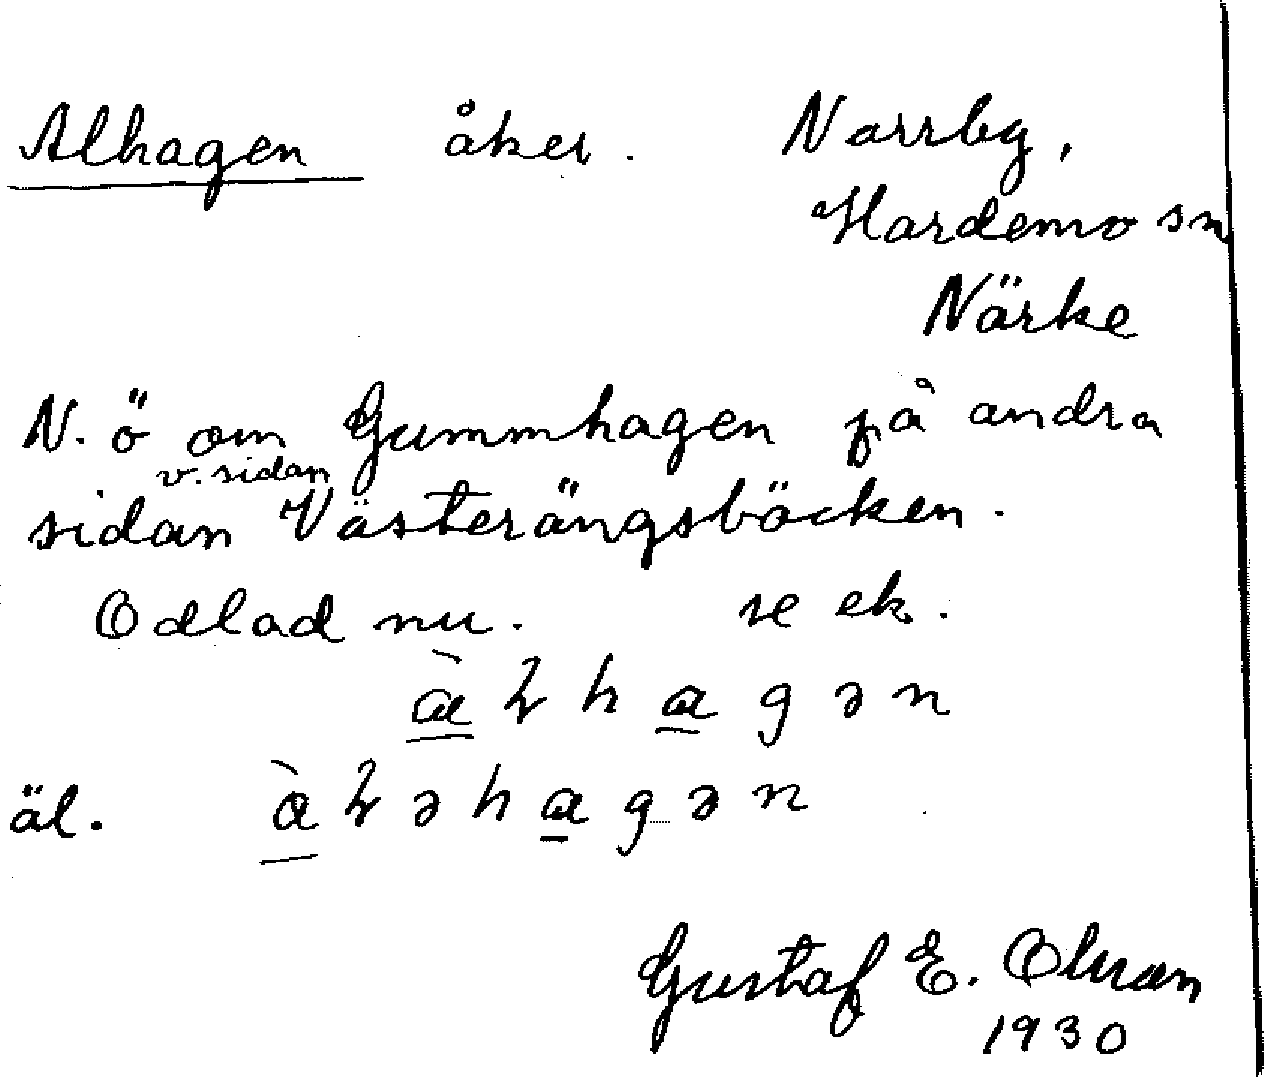 Alhagen åker. Norrby,
Hardemo sn
Närke
N. ö om Gummhagen på andra
v. sidan
sidan Västerängsbäcken.
Odlad nu. se ek.
äl.
Gustaf E. Olsson
1930